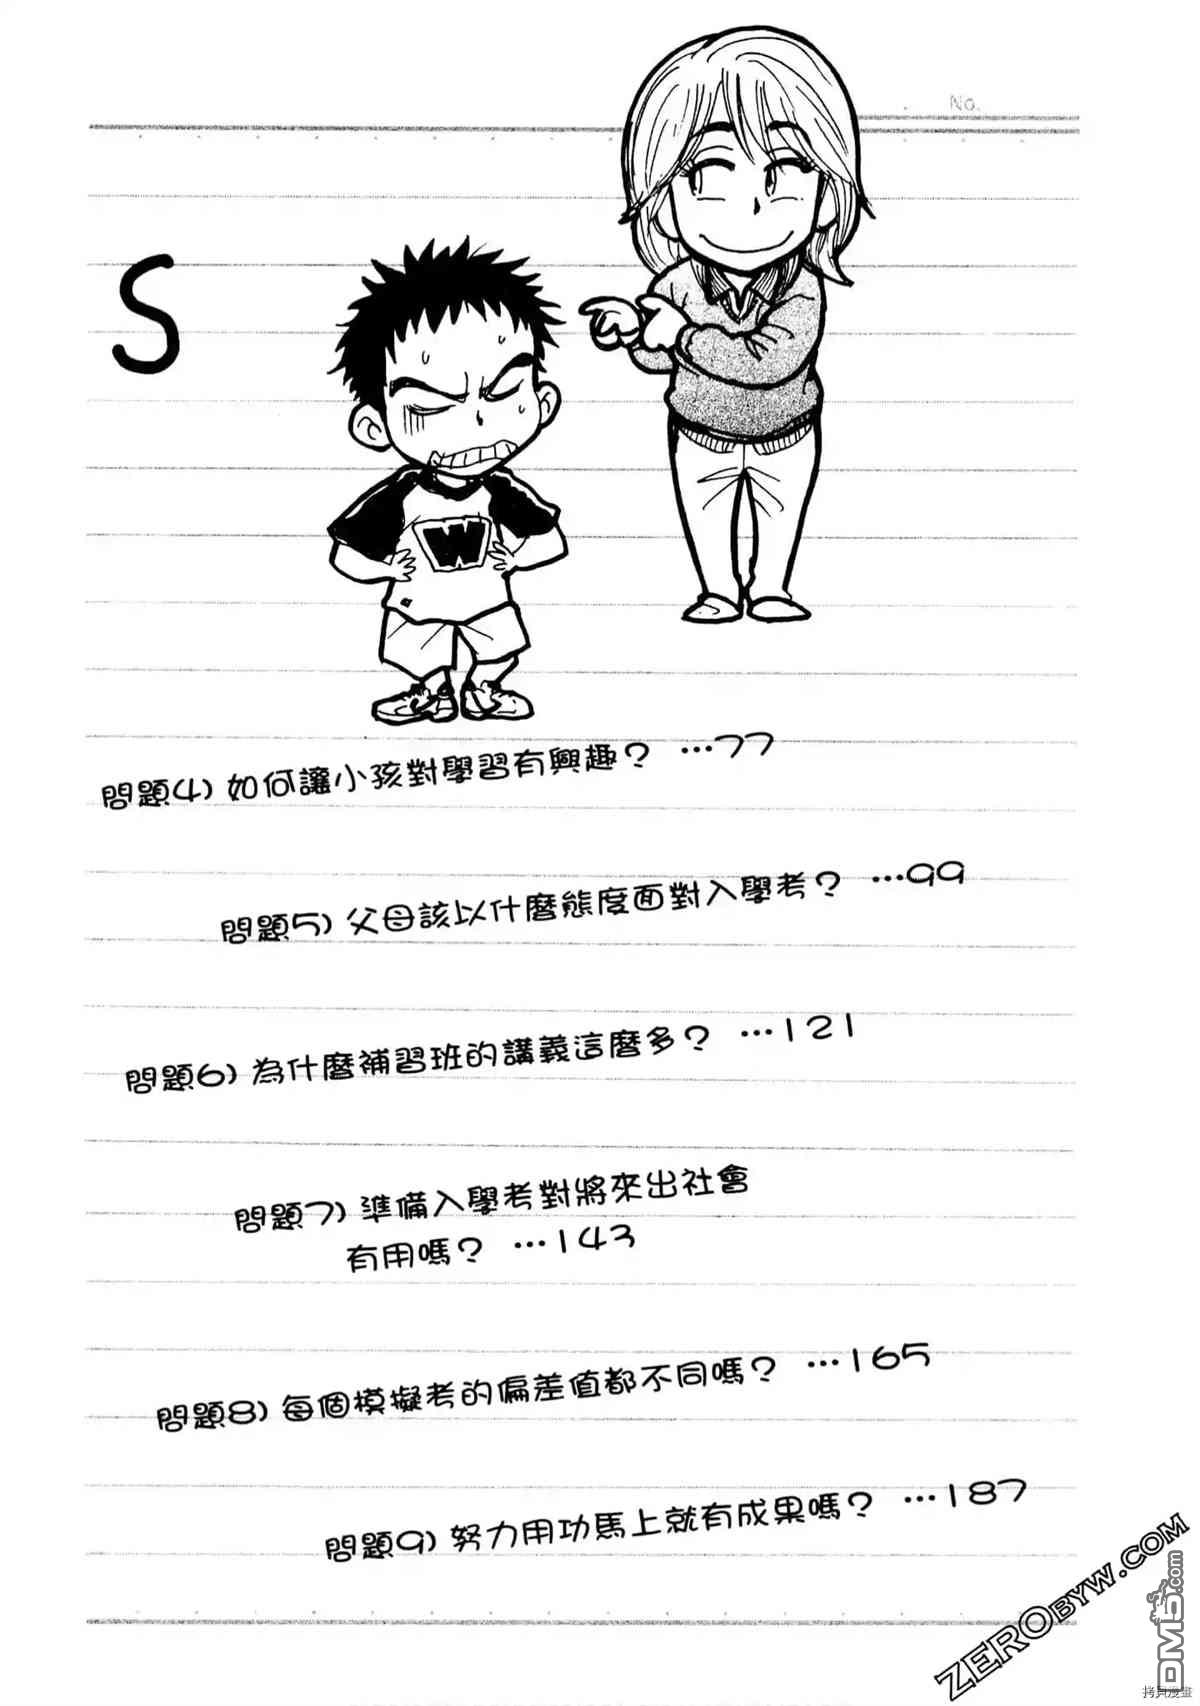 No.
S
W
問題4) 如何讓小孩對學習有興趣? …77
問題5) 父母該以什麼態度面對入學考? …99
問題6) 為什麼補習班的講義這麼多? …121
問題7) 準備入學考對將來出社會
有用嗎? …143
問題8) 每個模擬考的偏差值都不同嗎? …165
問題9) 努力用功馬上就有成果嗎? …187
ZEROBYW.COM
DM5.com
拷貝漫畫